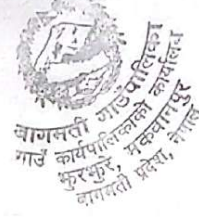 बागमती गाउँपालिका
गाउँ कार्यपालिकाको कार्यालय
फुरफुरे, मकवानपुर
बागमती प्रदेश, नेपाल